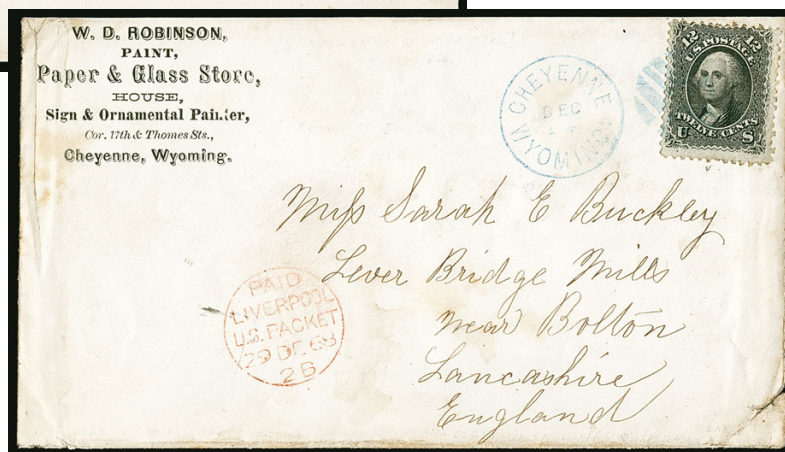 W. D. ROBINSON,
PAINT,
Paper & Glass Store,
HOUSE,
Sign & Ornamental Painter,
Cor. 17th & Thomes Sts.,
Cheyenne, Wyoming.
CHEYENNE
DEC
WYOMING
12 12
U.S. POSTAGE
TWELVE CENTS
U S
Miss Sarah E Buckley
Lever Bridge Mills
near Bolton
Lancashire
England
PAID
LIVERPOOL
U.S. PACKET
29 DE 68
2 B